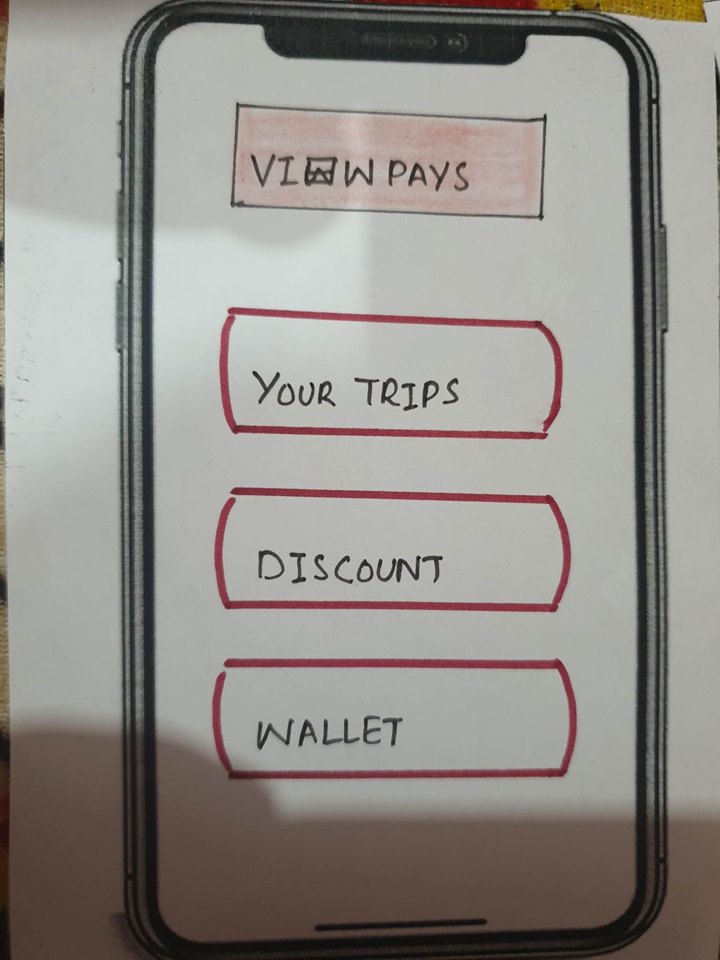 VIEW PAYS
YOUR TRIPS
DISCOUNT
WALLET